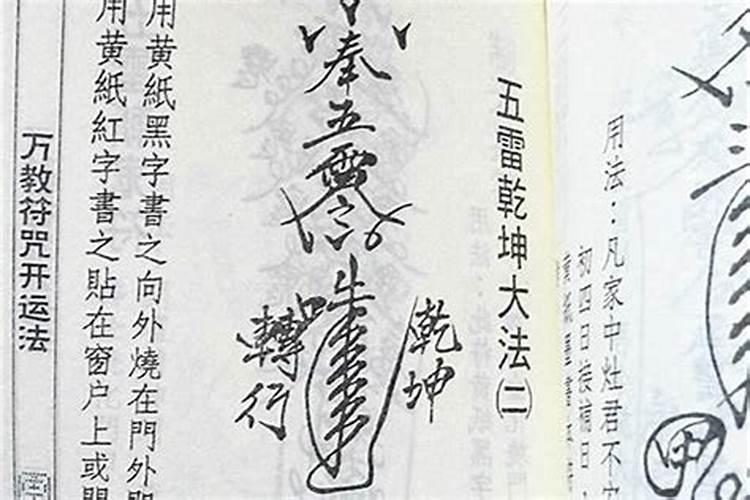 三
甲
用法：凡家中灶君不
初四日接補日
五雷乾坤大法㈡
奉五雷
乾坤
轉行
用黄紙黑字書之向外燒在門外即
用黄紙紅字書之貼在窗户上或
万教符咒开运法